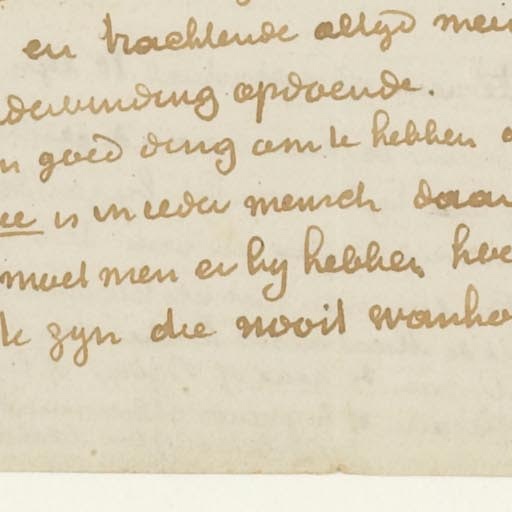 en trachtende altyd mee
dervinding opdoende.
n goed ding om te hebben
ee is in ieder mensch daar
moet men er by hebben hoe
k zyn die nooit wanho